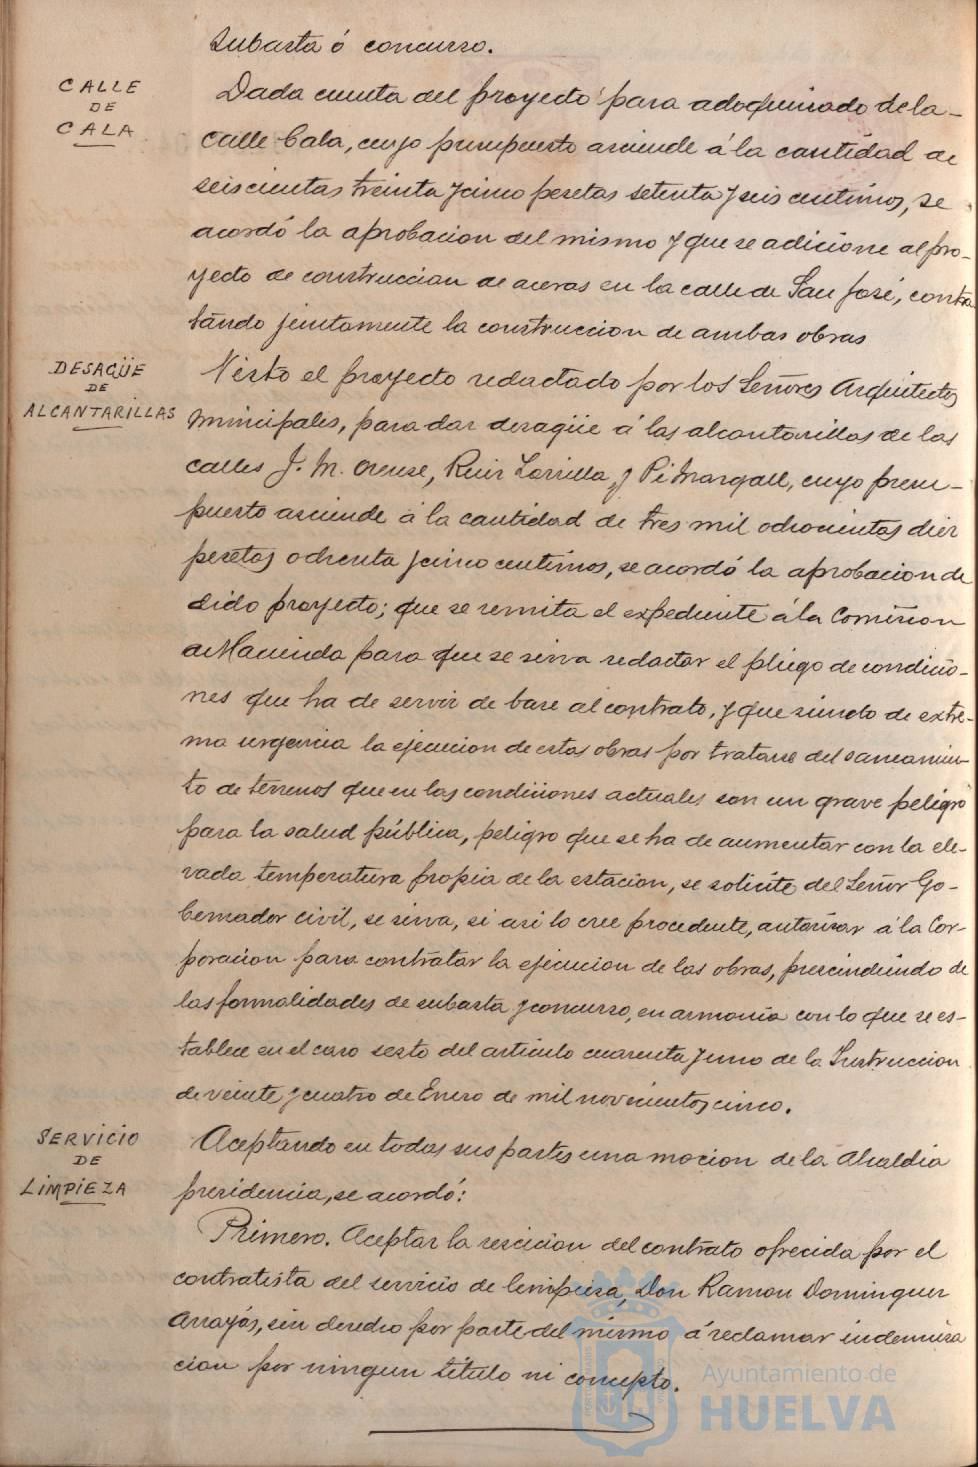 subasta ó concurso.
CALLE
DE
CALA
Dada cuenta del proyecto para adoquinado de la
calle Cala, cuyo presupuesto asciende á la cantidad de
seiscientas treinta y cinco pesetas setenta y seis centimos, se
acordó la aprobacion del mismo y que se adicione al pro-
yecto de construccion de aceras en la calle de San José, contra
tando juntamente la construccion de ambas obras
DESAGÜE
DE
ALCANTARILLAS
Visto el proyecto redactado por los Señores Arquitectos
municipales, para dar desagüe á las alcantarillas de las
calles J. M. Orense, Ruiz Zorrilla y Pi Margall, cuyo presu-
puesto asciende á la cantidad de tres mil ochocientas diez
pesetas ochenta y cinco centimos, se acordó la aprobacion de
dicho proyecto; que se remita el expediente á la Comision
de Hacienda para que se sirva redactar el pliego de condicio-
nes que ha de servir de base al contrato, y que siendo de extre-
ma urgencia la ejecucion de estas obras por tratarse del saneamien-
to de terrenos que en las condiciones actuales son un grave peligro
para la salud pública, peligro que se ha de aumentar con la ele-
vada temperatura propia de la estacion, se solicite del Señor Go-
bernador civil, se sirva, si asi lo cree procedente, autorizar á la Cor-
poracion para contratar la ejecucion de las obras, prescindiendo de
las formalidades de subasta y concurso, en armonia con lo que se es-
tablece en el caso sesto del articulo cuarenta y uno de la Instruccion
de veinte y cuatro de Enero de mil novecientos cinco.
SERVICIO
DE
LIMPIEZA
Aceptando en todas sus partes una mocion de la Alcaldia
presidencia, se acordó:
Primero. Aceptar la rescicion del contrato ofrecida por el
contratista del servicio de limpieza, Don Ramon Dominguez
Arrayás, sin derecho por parte del mismo á reclamar indemniza
cion por ningun titulo ni concepto.
Ayuntamiento de
HUELVA